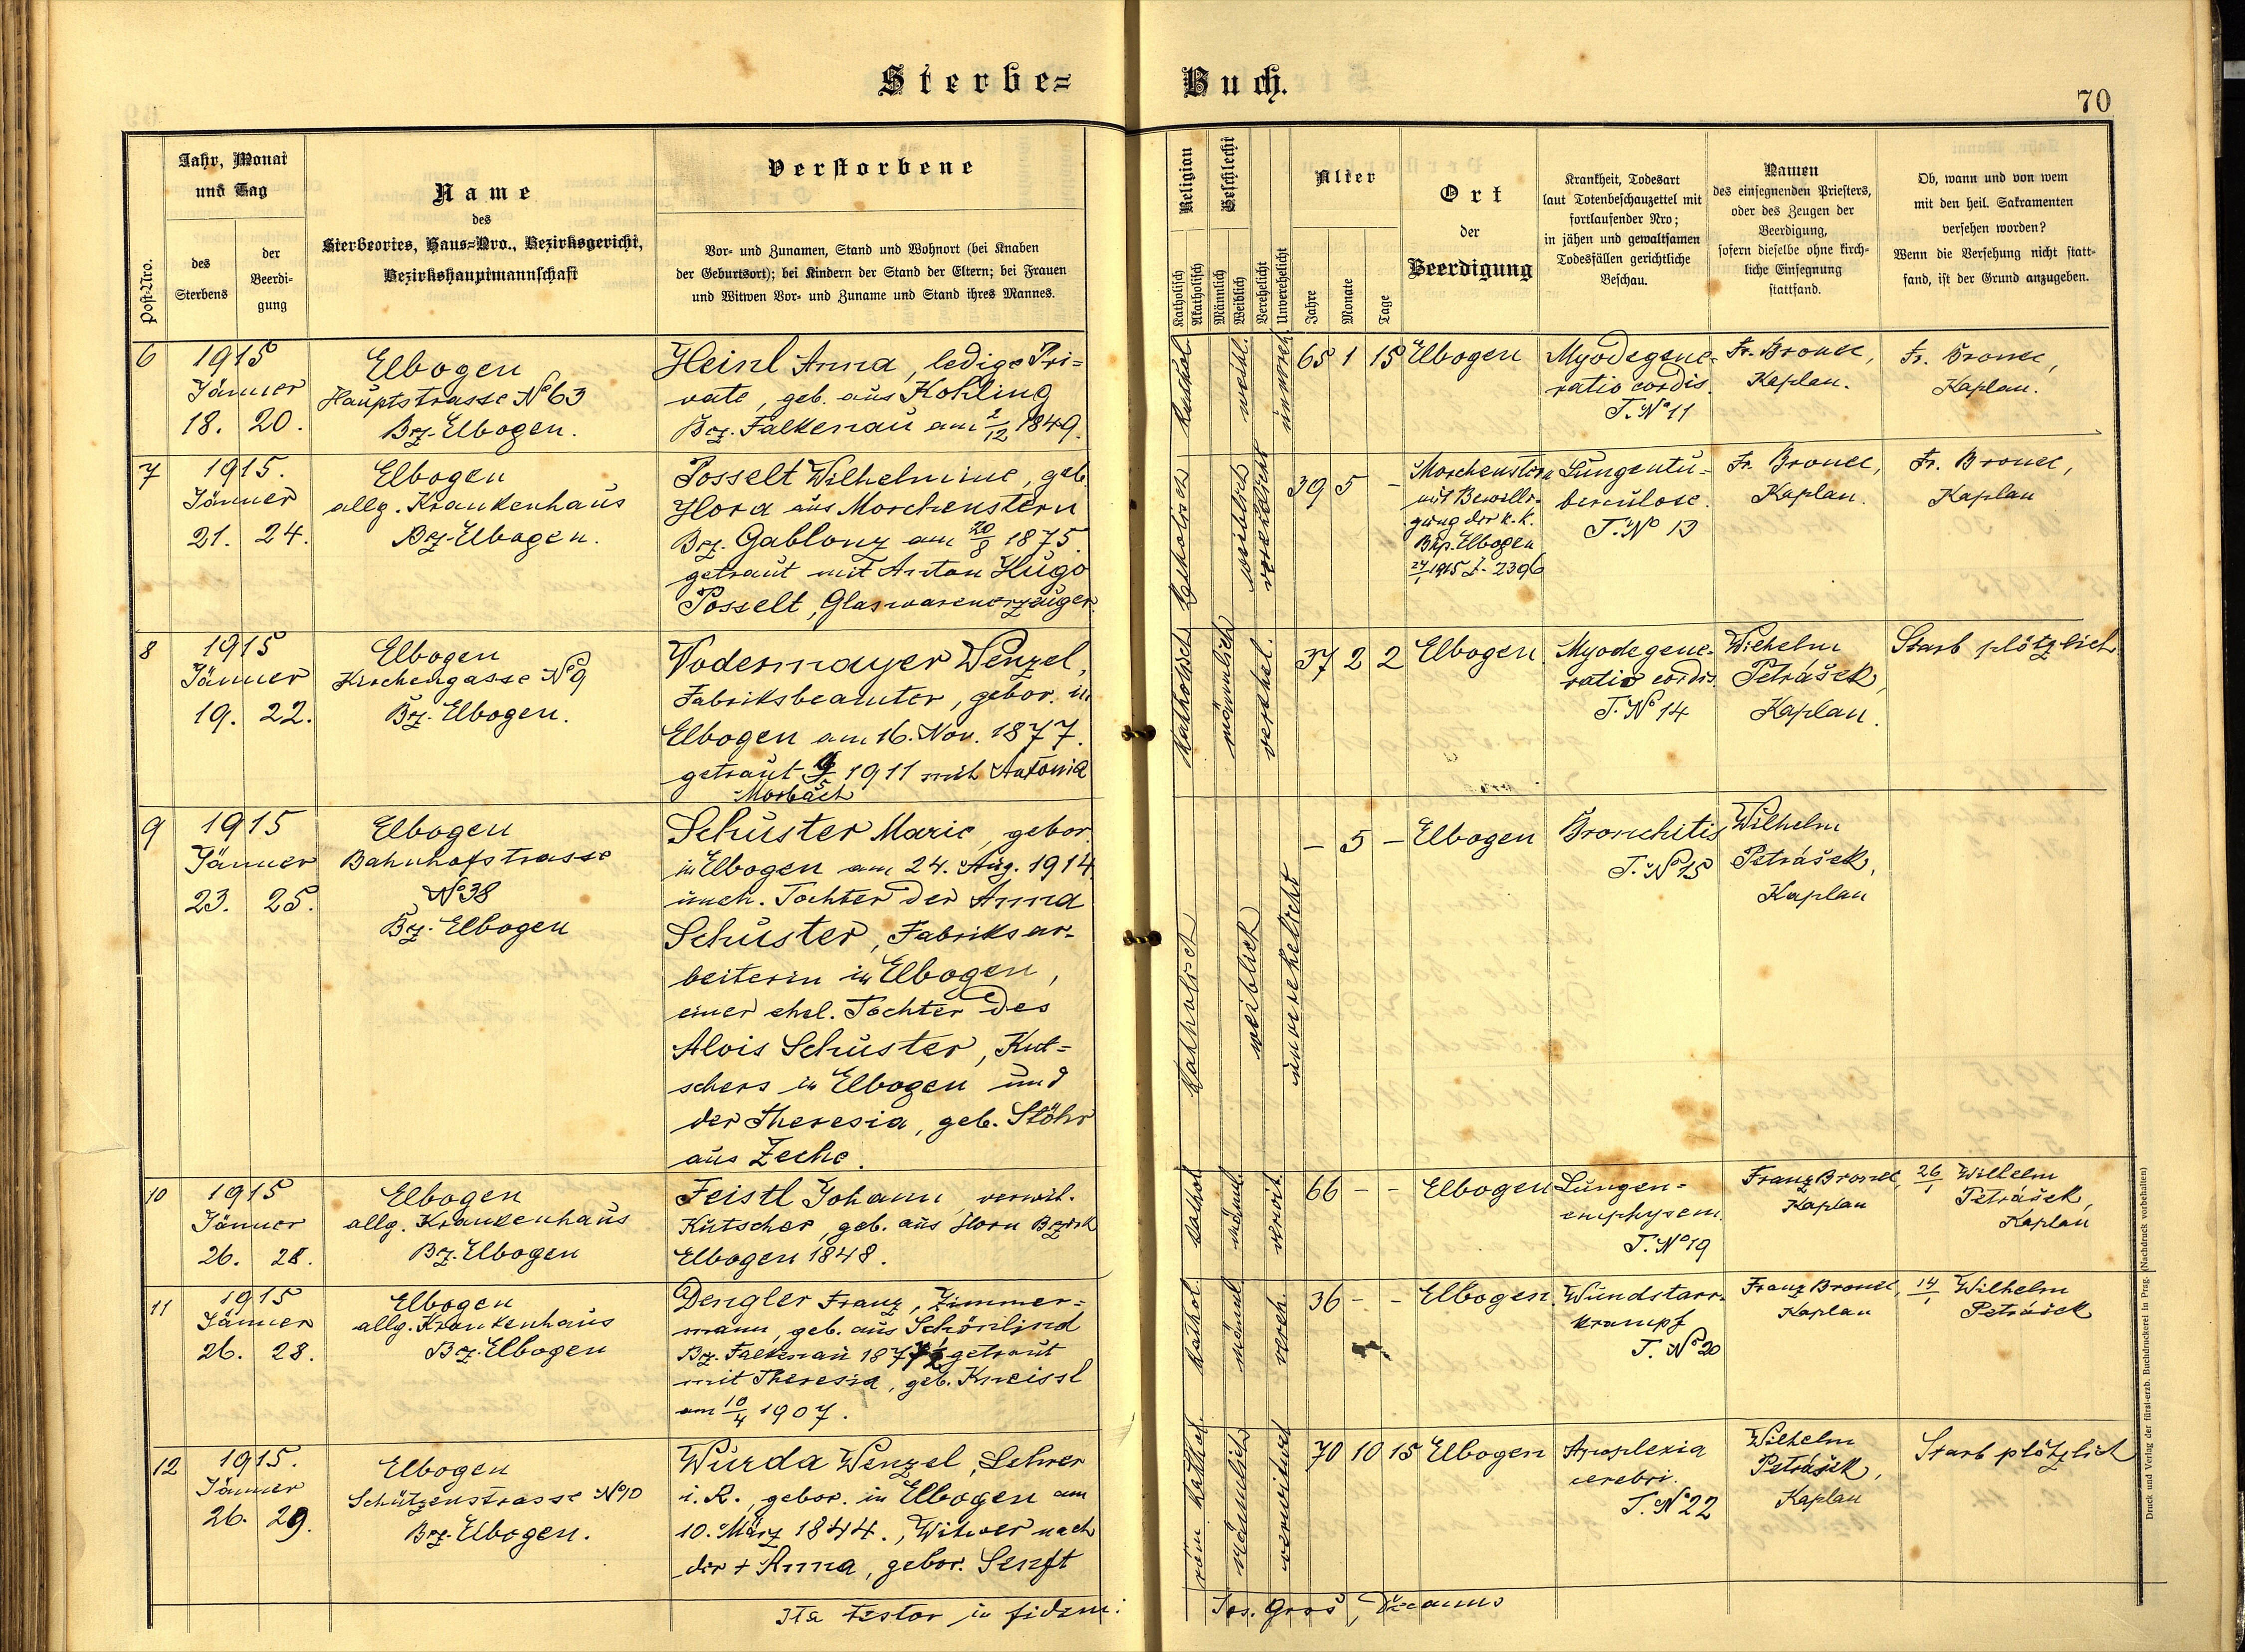 Sterbe=
Buch.
70
Post-Nro.
Jahr, Monat
und Tag
des
Sterbens
der
Beerdi-
gung
Name
des
Sterbeortes, Haus=Nro., Bezirksgericht,
Bezirkshauptmannschaft
Verstorbene
Vor- und Zunamen, Stand und Wohnort (bei Knaben
der Geburtsort); bei Kindern der Stand der Eltern; bei Frauen
und Witwen Vor- und Zuname und Stand ihres Mannes.
Religion
Katholisch
Akatholisch
Geschlecht
Männlich
Weiblich
Verehelicht
Unverehelicht
Alter
Jahre
Monate
Tage
Ort
der
Beerdigung
Krankheit, Todesart
laut Totenbeschauzettel mit
fortlaufender Nro;
in jähen und gewaltsamen
Todesfällen gerichtliche
Beschau.
Namen
des einsegnenden Priesters,
oder des Zeugen der
Beerdigung,
sofern dieselbe ohne kirch-
liche Einsegnung
stattfand.
Ob, wann und von wem
mit den heil. Sakramenten
versehen worden?
Wenn die Versehung nicht statt-
fand, ist der Grund anzugeben.
6
1915
Jänner
18. 20.
Elbogen
Hauptstrasse No 63
Bez. Elbogen.
Heinl Anna, ledige Pri=
vate, geb. aus Kohling
Bez. Falkenau am 2/12 1849.
kathol.
weibl.
unvereh.
65 1 15
Elbogen
Myodegene-
ratio cordis.
T. No 11
Fr. Bronec,
Kaplan.
Fr. Bronec,
Kaplan.
7
1915.
Jänner
21. 24.
Elbogen
allg. Krankenhaus
Bez. Elbogen.
Posselt Wilhelmine, geb.
Hora aus Morchenstern
Bez. Gablonz am 20/8 1875.
getraut mit Anton Hugo
Posselt, Glaswarenerzeuger.
katholisch
weiblich
verehelicht
39 5 -
Morchenstern
mit Bewilli-
gung der k. k.
Bhp. Elbogen
24/1 1915 Z. 2396
Lungentu-
berculose.
T. No 13
Fr. Bronec,
Kaplan.
Fr. Bronec,
Kaplan
8
1915
Jänner
19. 22.
Elbogen
Kirchengasse No 9
Bez. Elbogen.
Wodermayer Wenzel,
Fabriksbeamter, gebor. in
Elbogen am 16. Nov. 1877.
getraut 9/5 1911 mit Antonia
Morbach
katholisch
männlich
verehel.
37 2 2
Elbogen.
Myodegene-
ratio cordis.
T. No 14
Wilhelm
Petrášek,
Kaplan.
Starb plötzlich
9
1915
Jänner
23. 25.
Elbogen
Bahnhofstrasse
No 38
Bez. Elbogen
Schuster Marie, gebor.
in Elbogen am 24. Aug. 1914
uneh. Tochter der Anna
Schuster, Fabriksar-
beiterin in Elbogen,
einer ehel. Tochter des
Alois Schuster, Kut=
schers in Elbogen und
der Theresia, geb. Stöhr
aus Zeche.
katholisch
weiblich
unverehelicht
- 5 -
Elbogen
Bronchitis
T. No 15
Wilhelm
Petrášek,
Kaplan
10
1915
Jänner
26. 28.
Elbogen
allg. Krankenhaus
Bez. Elbogen
Feistl Johann, verwit.
Kutscher, geb. aus Horn Bezirk
Elbogen 1848.
kathol.
männl.
verwit.
66 - -
Elbogen
Lungen=
emphysem.
T. No 19
Franz Bronec,
Kaplan
26/1 Wilhelm
Petrášek,
Kaplan
11
1915
Jänner
26. 28.
Elbogen
allg. Krankenhaus
Bez. Elbogen
Dengler Franz, Zimmer=
mann, geb. aus Schönlind
Bez. Falkenau getraut
mit Theresia, geb. Kneissl
am 10/4 1907.
kathol.
männl.
vereh.
36 - -
Elbogen.
Wundstarr-
krampf
T. No 20
Franz Bronec,
Kaplan
14/1 Wilhelm
Petrášek
12
1915.
Jänner
26. 29.
Elbogen
Schützenstrasse No 10
Bez. Elbogen.
Wurda Wenzel, Lehrer
i. R., gebor. in Elbogen am
10. März 1844., Witwer nach
der + Anna, gebor. Senft
röm. kathol.
männlich
verwitwet
70 10 15
Elbogen
Apoplexia
cerebri.
T. No 22
Wilhelm
Petrášek,
Kaplan
Starb plötzlich
Ita testor in fidem:
Jos. Groš, Decanus
Druck und Verlag der fürst-erzb. Buchdruckerei in Prag. (Nachdruck vorbehalten)